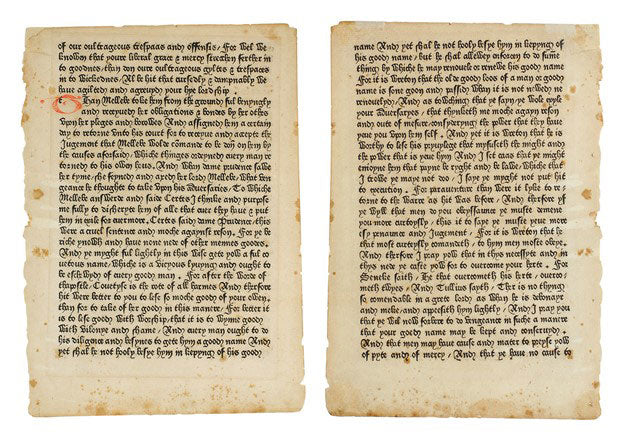 of our oultrageous trespaas and offensis / For wel we
knowen that youre liberal grace & mercy strecchen ferther in
to goodnes / than don oure oultrageous gyltes & trespaces
in to wickednes / Al be hit that cursedly & dampnably we
haue agilted and agreuyd your hye lordship .
Han Mellebe to ke hem from the ground ful benyngly
and receyued her obligacions & bondes by her othes
vpon her plegges and borowes / And assigned hem a certayn
day to retorne vnto his court for to receyue and accepte the
Jugement that Mellebe wolde comande to be don on hem by
the causes aforsaid / Whiche thinges ordeyned euery man re
torned to his owen hous / And whan dame prudence sawe
her tyme / she feyned and axed her lord Mellebe / What ven
geance he thought to take vpon his aduersaries / To which
Mellebe answerd and saide Certes I thinke and purpose
me fully to disheryte hem of alle that euer they haue & put
hem in exile for euermore / Certes said dame Prudence / this
were a cruel sentence and moche ageinst reson / For ye be
riche ynowh and haue none nede of other mennes goodes /
And ye myght ful lightly in this wise gete yow a ful co
uetous name / Which is a vicyous thing and ought to
be eschewyd of euery good man / For after the word of
thapostle / Couetyse is the rote of all harmes And therfore
hit were better to you to lese so moche good of your owen /
than for to take of her good in this manere / For better it
is to lese good with worship / that it is to wynne good
with vilonye and shame / And euery man ought to do
his diligence and besynes to gete hym a good name And
yet shal he not oonly besye hym in kepyng of his good
name And yet shal he not oonly besye hym in kepyng of
his good name / but he shal alwey enforcen to do some
thing by which he may renouele or renewe his good name
For it is wreton that the olde good loos of a man or good
name is sone goon and passid whan it is not newed ne
renouelyd / And as towching that ye sayn / ye wole exyle
your aduersaryes / that thinketh me moche ageyn reson
and oute of mesure / consyderyng the power that they haue
yeue you vpon hem self / And yet it is wreton that he is
worthy to lese his pryuylege that myseth the might and
the power that is yeue hym / And I set caas that ye might
enioyne hem that payne by ryght and by lawe / Which that
I trowe ye maye not do / I saye ye myght not put hit
to execution / For parauenture than were it lyke to re
torne to the warre as hit was before / And therfore yf
ye wyll that men do you obeyssance ye muste demene
you more curtoysly / this it to saye ye muste yeue more
esy sentence and Jugement / For it is wreton that he
that most curtoysly comandeth / to hym men moste obeye .
And therfore I pray yow that in thys necessyte and in
thys nede ye caste yow for to ouercome your herte / For
Seneke saith / He that ouercometh his herte / ouerco-
meth twyes / And Tullius sayth / Ther is no thyng
so comendable in a grete lord as whan he is debonayr
and meke / and appeseth hym lightly / And I pray you
that ye wil now forbere to do vengeance in suche a manere
that your good name may be kept and conseruyd /
And that men may haue cause and mater to preyse yow
of pyte and of mercy / And that ye haue no cause to